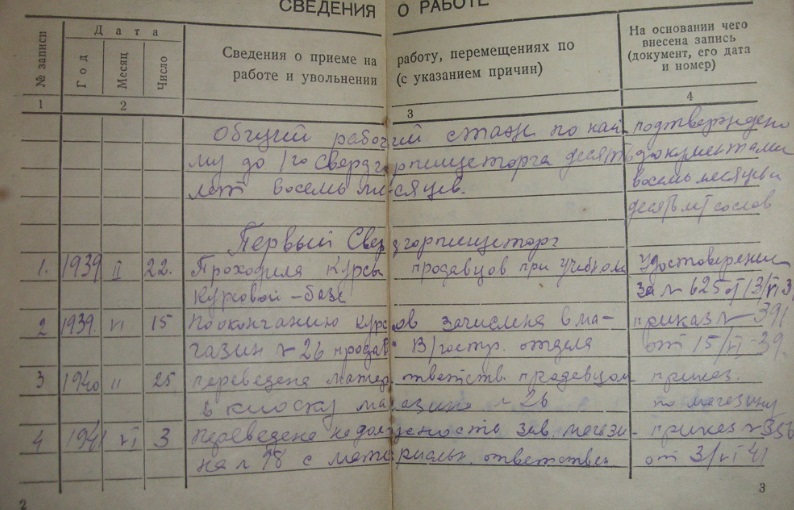 СВЕДЕНИЯ О РАБОТЕ
№ записи
Дата
Год
Месяц
Число
Сведения о приеме на работу, перемещениях по
работе и увольнении (с указанием причин)
На основании чего
внесена запись
(документ, его дата
и номер)
1 2 3 4
Общий рабочий стаж по най- подтверждено
му до 1го Свердгорпищеторга десять документами
лет восемь месяцев. восемь месяцев
десять лет со слов
Первый Свердгорпищеторг
1. 1939 II 22. Проходила курсы продавцов при учебном Удостоверение
курсовой базе за № 625 от 13/VI 3
2 1939. VI 15 По окончанию курсов зачислена в ма- приказ № 391
газин № 26 продав. отдела от 15/VI-39.
3 1940 II 25 переведена матер. ответств продавцом приказ.
в киоск магазина № 26 по магазину
4 1941 VI 3 Переведена на должность зав. магази- приказ № 356
на № 98 с материальн. ответствен от 3/VI 41
2
3